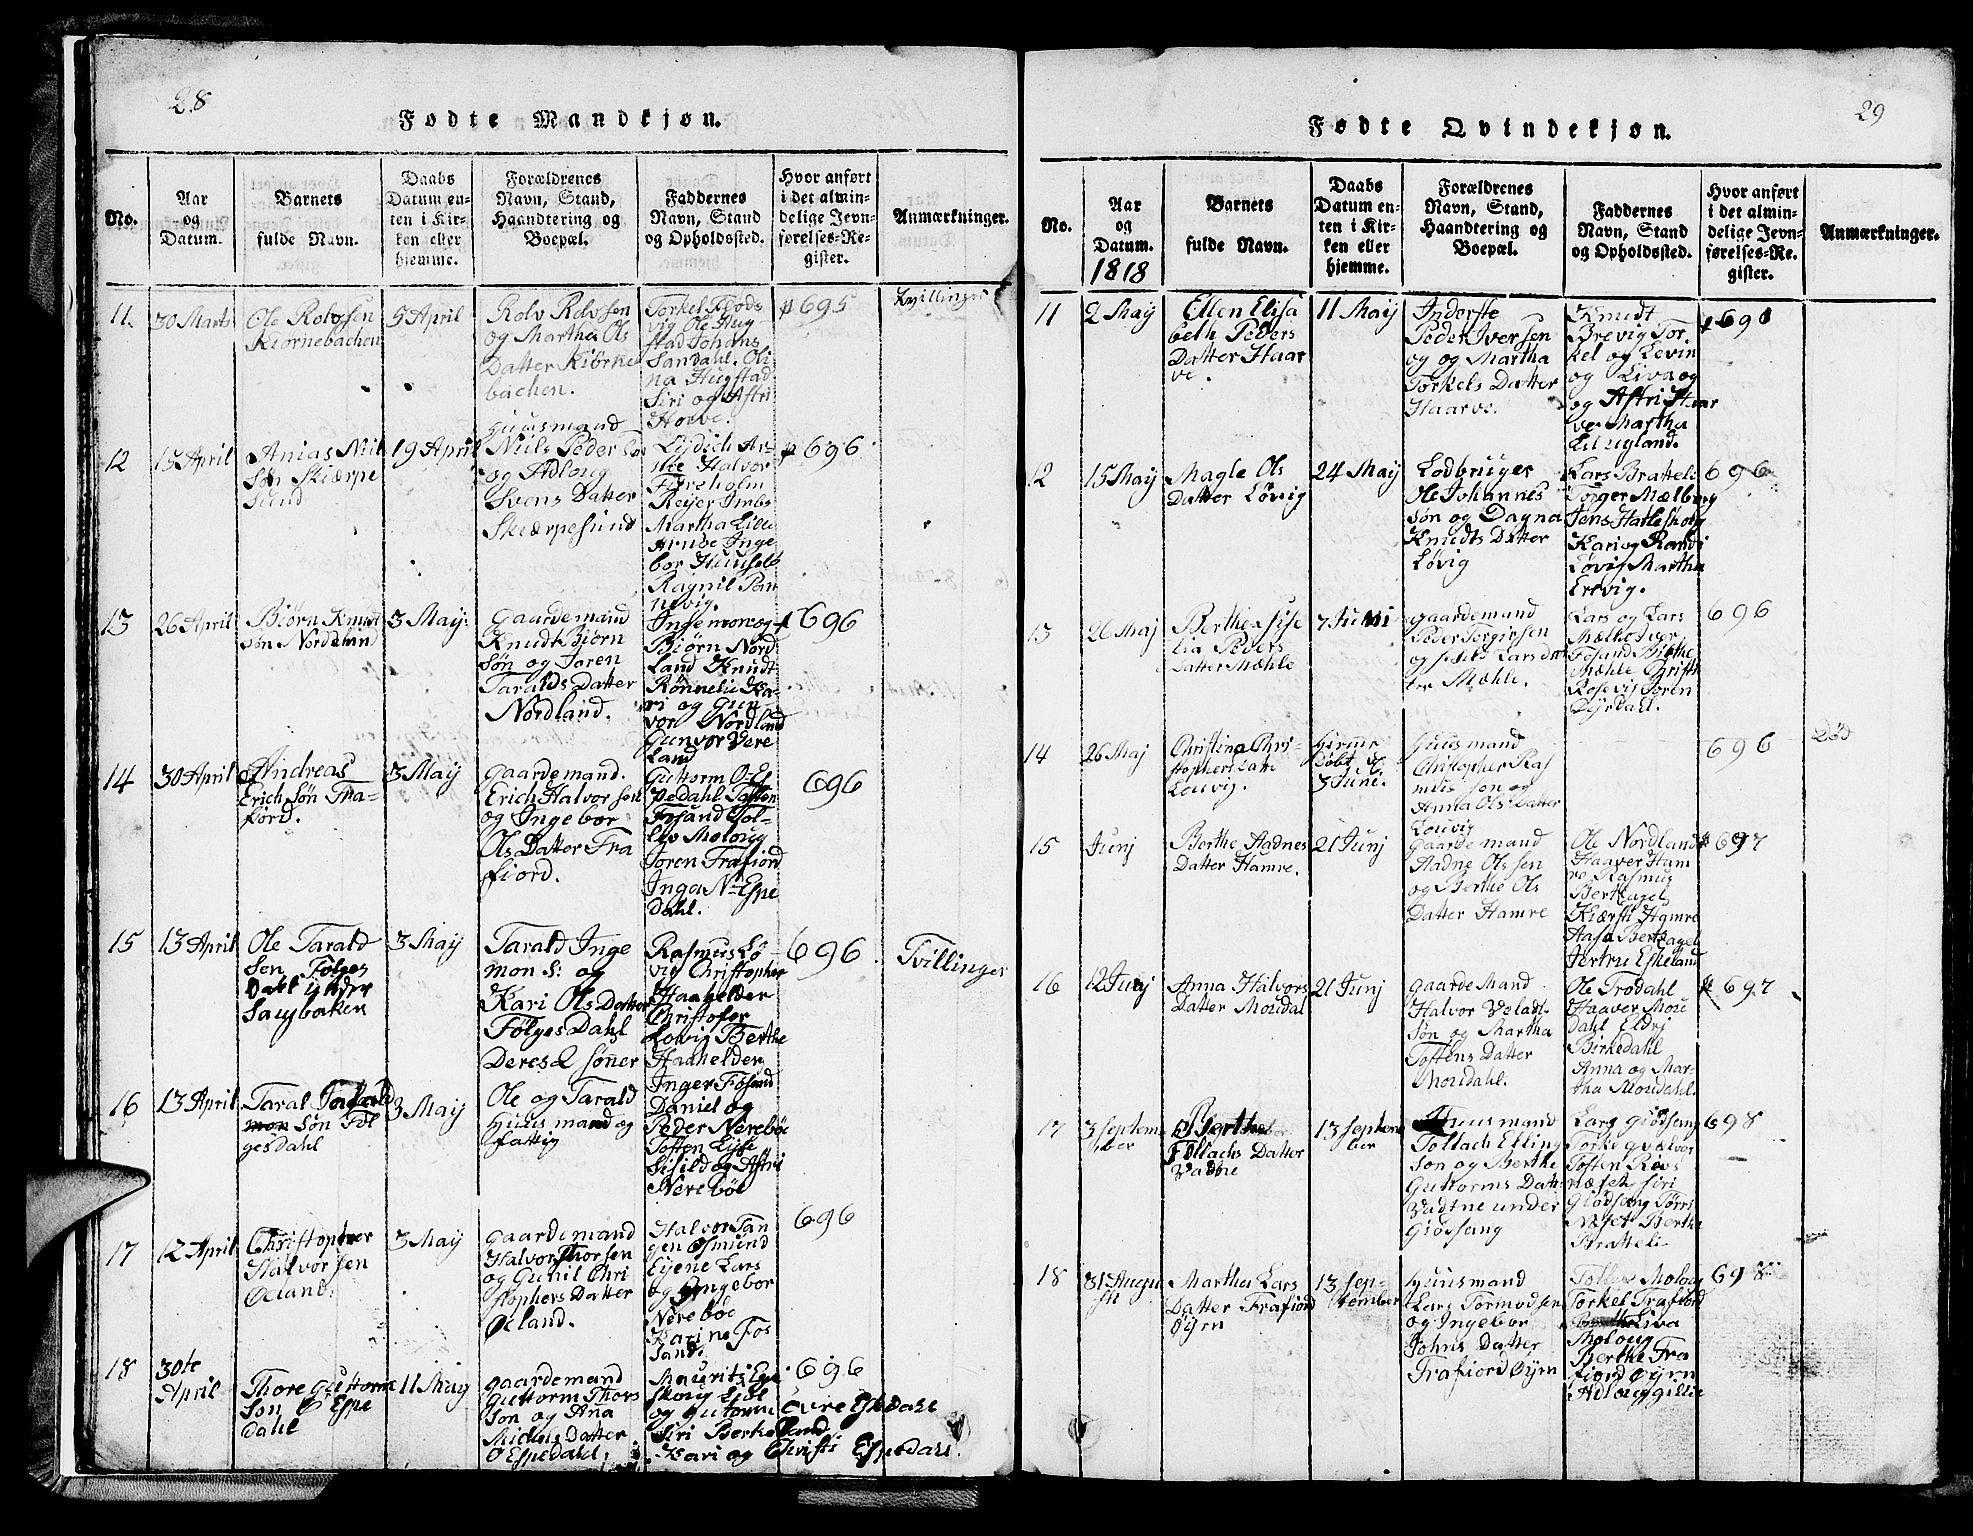 28
Fødte Mandkjøn.
No.
Aar
og
Datum.
Barnets
fulde Navn.
Daabs
Datum en-
ten i Kir-
ken eller
hjemme.
Forældrenes
Navn, Stand,
Haandtering og
Boepæl.
Faddernes
Navn, Stand
og Opholdssted.
Hvor anført
i det almin-
delige Jevn-
førelses-Re-
gister.
Anmærkninger.
11.
30 Marts
Ole Rolvsen
Kiørnebachen
5 April
Rolv Rolvsen
og Martha Ols
Datter Kiørne
bachen.
Torkel Fløds
vig Ole Hug-
stad Johans
Sandahl. Oli
na Hugstad
Siri og Astri
695
12
15 April
Anias Niel
søn Skiærpe
sund
19 April
Huusmand
Niels Peder
og Adloug
Svens Datter
Skiærpesund
Halvor
Martha Lille
696
13
26 April
Biørn Knudt
søn Nordland
3 May
Gaardemand
Knudt Biørn
søn og Joren
Taralds Datter
Nordland.
Ingemon og
Biørn Nord
land Knudt
Rønnelie Ka-
ri og Gun-
vor Nordland
Gunvor Være
land
696
14
30 April
Andreas
Erich søn Fra-
fiord.
3 May
Gaardemand.
Erich Halvorsen
og Ingebor
Ols Datter Fra
fiord.
Guttorm O-Es
pedahl Tosten
Fosand Tol-
lev Moloug
Joren Frafiord
Inga N-Espe
dahl.
696
15
13 April
Ole Tarald
sen Følges
Dahl under
3 May
Tarald Inge
mon S: og
Kari Ols Datter
Følges Dahl
Deres 2 sønner
Ole og Tarald
Huusmand og
fattig
Rasmus Lø
vig Christopher
Haahelder
Christofer
Lovig Berthe
Haahelder
Inger Fosand
696
Tvillinger
16
13 April
Taral
søn Føl
gesdahl
3 May
Daniel og
Peder Nerebøe
Tosten
Sisild og Astri
Nerebøe
17
12 April
Christopher
Halvorsen
Øeland.
3 May
Gaardemand
Halvor Thorsen
og Gunil Chri
stophers Datter
Øeland.
Halvor Tan
gen Osmund
Eiene Lars
og Ingebor
Nerebøe
Karine Fos
sand.
696
18
30te
April
Thore Guttorm
søn Ø Espe
dahl
11 May
Gaardemand
Guttorm Thors
søn og Anna
Michels Datter
Ø Espedahl
Maurits
og Guttorm Øvre Espedahl
Siri Berkeland
Kari og Christi Espedahl.
696
29
Fødte Qvindekjøn.
No.
Aar
og
Datum.
1818
Barnets
fulde Navn.
Daabs
Datum en-
ten i Kir-
ken eller
hjemme.
Forældrenes
Navn, Stand,
Haandtering og
Boepæl.
Faddernes
Navn, Stand
og Opholdssted.
Hvor anført
i det almin-
delige Jevn-
førelses-Re-
gister.
Anmærkninger.
11
2 May
Ellen Elisa
beth Peders
Datter Haar
ve.
11 May
Inderste
Peder Iversen
og og Martha
Torkels Datter
Haarve.
Knudt
Brevig Tor-
kel og Levin
og Liva og
og Astri Haar
ve Martha
Lillugland.
696
12
15 May
Magle Ols
Datter Løvig
24 May
Lodbruger
Ole Johannes
søn og Dagna
Knudts Datter
Løvig
Lars Brattelie
Torger Mælberg
Jens Hatleskoug
Kari og Randi
Løvig Martha
Ertvig.
696
13
26 May
Berthe Sise
lia Peders
Datter Mæhle
7 Juni
Gaardemand
Peder Torgersen
og Sisils Lars dat
ter Mæhle.
Lars og Lars
Mæhle Iver
Fosand Birthe
Mæhle
Dyrdahl.
696
14
26 May
Christina Chri-
stophers Datt
Louvig.
3 Juni.
Huusmand
Christopher Ras
mus søn og
Anna Ols Datter
Louvig
696
Død
15
Junj
Berthe Aadnes
Datter Hamre.
21 Junj
Gaardemand
Aadne Olssen
og Berthe Ols
Datter Hamre
Ole Nordland
Haaver Ham
re Rasmus
Bertsagel
Kiersti Hamre
Aasa Bertsagel
Jertru Eskeland
697
16
12 Junj
Anna Halvors
Datter Moudal
21 Junj
Gaarde Mand
Halvor
søn og Martha
Tostens Datter
Moudahl.
Ole Trodahl
Haaver Mou
dahl Eldrj
Birkedahl
Anna og Mar-
tha Moudahl.
697
17
3 Septem
ber
Berthe
Tollachs Datter
Vadtne
13 Septem
ber
Huusmand
Tollach Elling
søn og Berthe
Guttorms Datt
Vadtne under
Giødsang
Lars Giødsang
Torke
Tosten Riis
næset Siri
Giødsang Torri
Næset Berthe
Bratteli
698
18
31 Augu
st
Martha Lars
Datter Frafiord
Øÿrn
13 Sep-
tember
Huusmand
Lars Tormodsen
og Ingebor
Johns Datter
Frafiord Øÿrn
Tolles Moloug
Torkel Frafiord
Liva
Moloug
Berthe Fra
fiord Øÿrn
Adloug Gillie
698